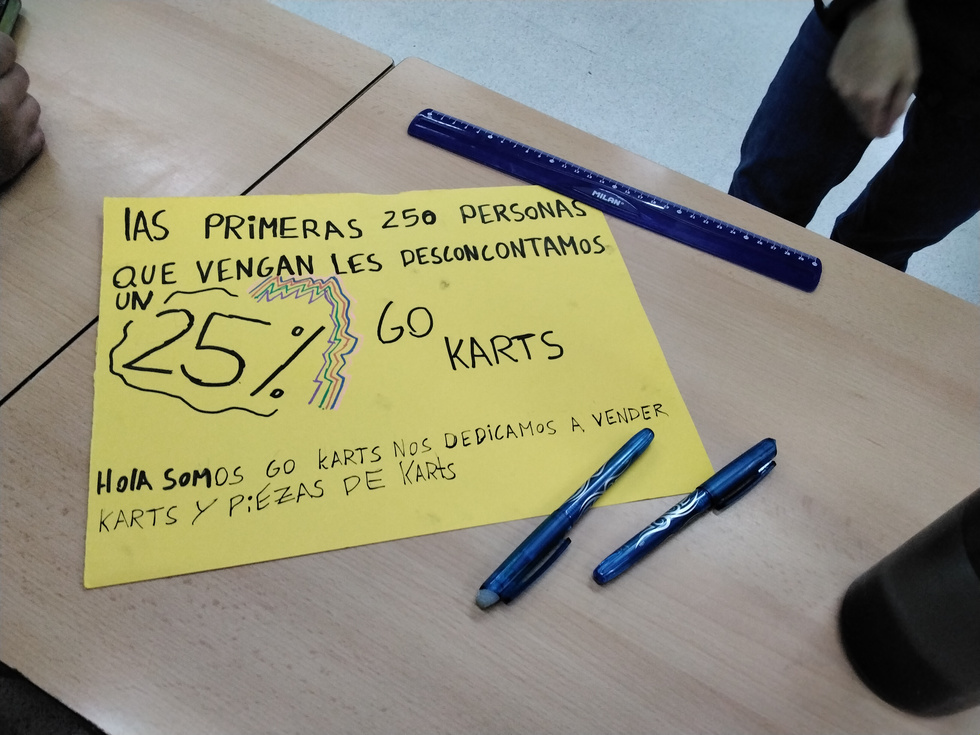 lAS PRiMERAS 250 PERSONAS
QUE VENGAN LES DESCONCONTAMOS
UN
25%
GO
KARTS
HolA SOMOS GO KARTS NOS DEDiCAMOS A VENDER
KARTS Y PiÉZAS DE KARts
MILAN